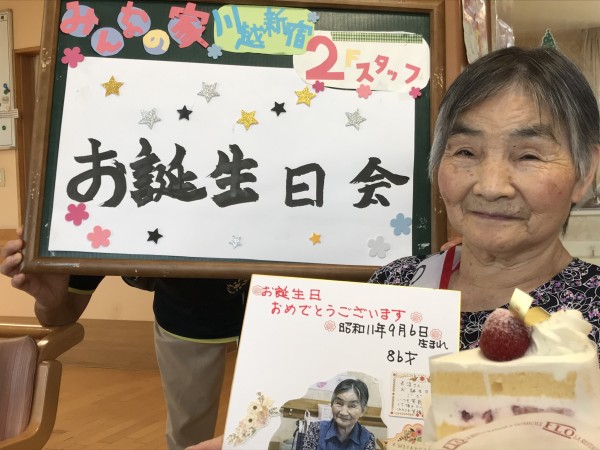 みんなの家
川越新宿
2Fスタッフ
お誕生日会
お誕生日
おめでとうございます
昭和11年9月6日
生まれ
86才